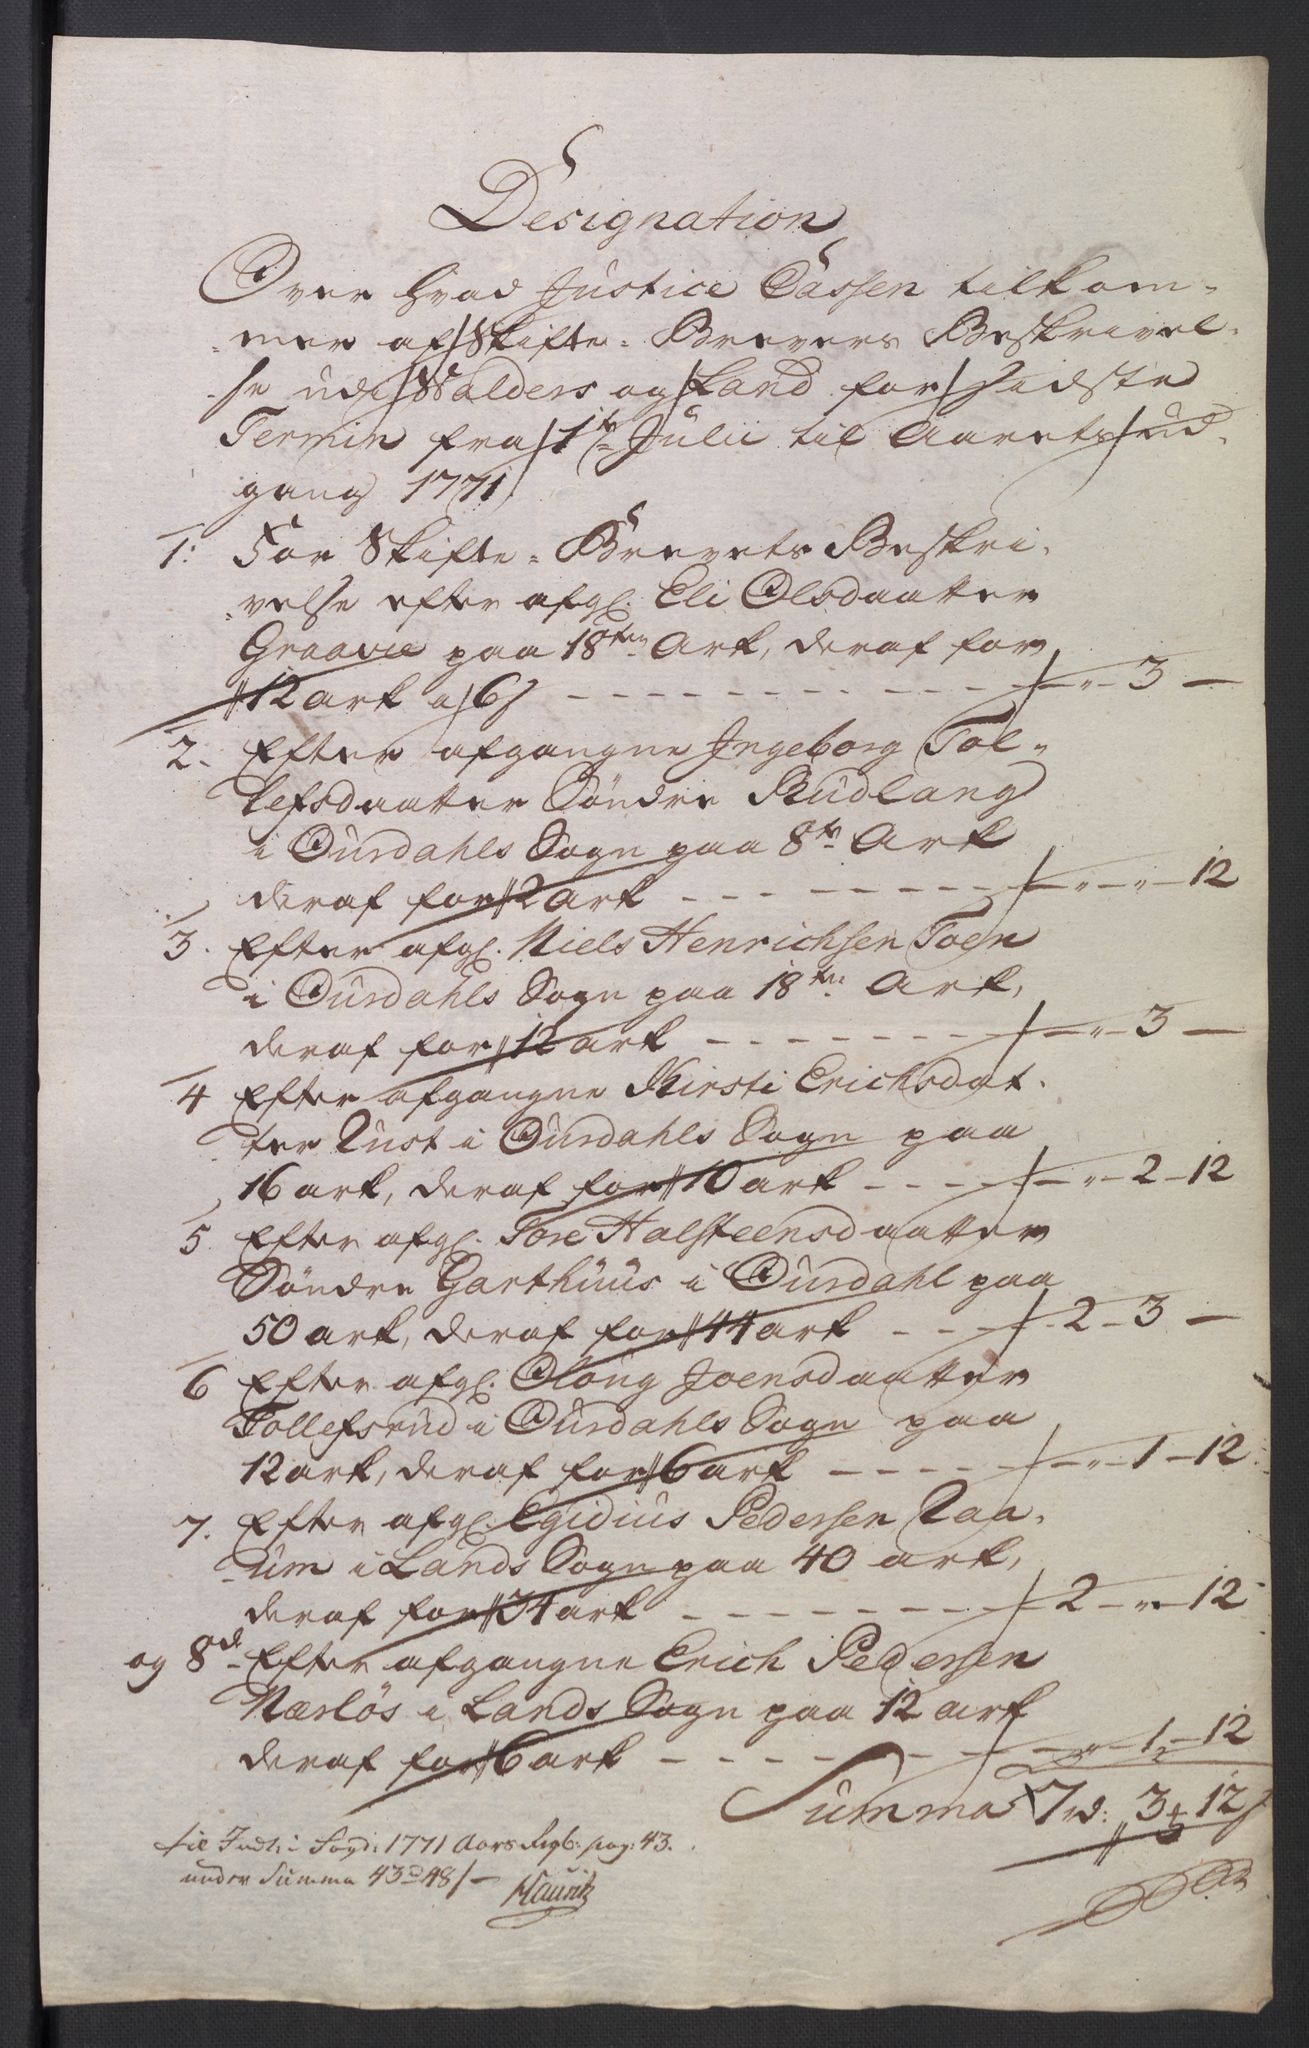 Designation
Over hvad Justice Cassen tilkom-
mer af Skifte-Brevers Beskrivel-
se udi Walders og Land for Sidste
Termin fra 1te Julii til Aarets Ud-
gang 1771
1: For Skifte-Brevets Beskri-
velse efter afgl. Eli Olsdaatter
Graavie paa 18ten Ark, deraf for
12 ark a 6 s - - - " - 3 -
2. Efter afgangne Ingeborg Tol-
lefsdaatter Söndre Rudlang
i Ourdahls Sogn paa 8te Ark
deraf for 2 ark - - - " - " - 12
3. Efter afgl. Niels Henrichsen Toen
i Ourdahls Sogn paa 18ten Ark,
deraf for 12 ark - - - " - 3 -
4 Efter afgangne Kirsti Erichsdat-
ter Rust i Ourdahls Sogn paa
16 ark, deraf for 10 ark - - - " - 2 - 12
5. Efter afgl. Tore Halsteensdaatter
Söndre Garthuus i Ourdahl paa
50 ark, deraf for 44 ark - - - 2 - 3 -
6 Efter afgl. Oloug Joensdaatter
Tollefsrud i Ourdahls Sogn paa
12 ark, deraf for 6 ark - - - " - 1 - 12
7. Efter afgl. Egidius Pedersen Raa-
um i Lands Sogn paa 40 ark,
deraf for 34 ark - - - 2 - " - 12
og 8de Efter afgangne Erich Pedersen
Nærlös i Lands Sogn paa 12 ark
deraf for 6 ark - - - " - 1 - 12
Summa 7 rd: 3 12 s
til Indt: i Fogd: 1771 Aars Regb: pag: 43.
under Summa 43 d 48 s -